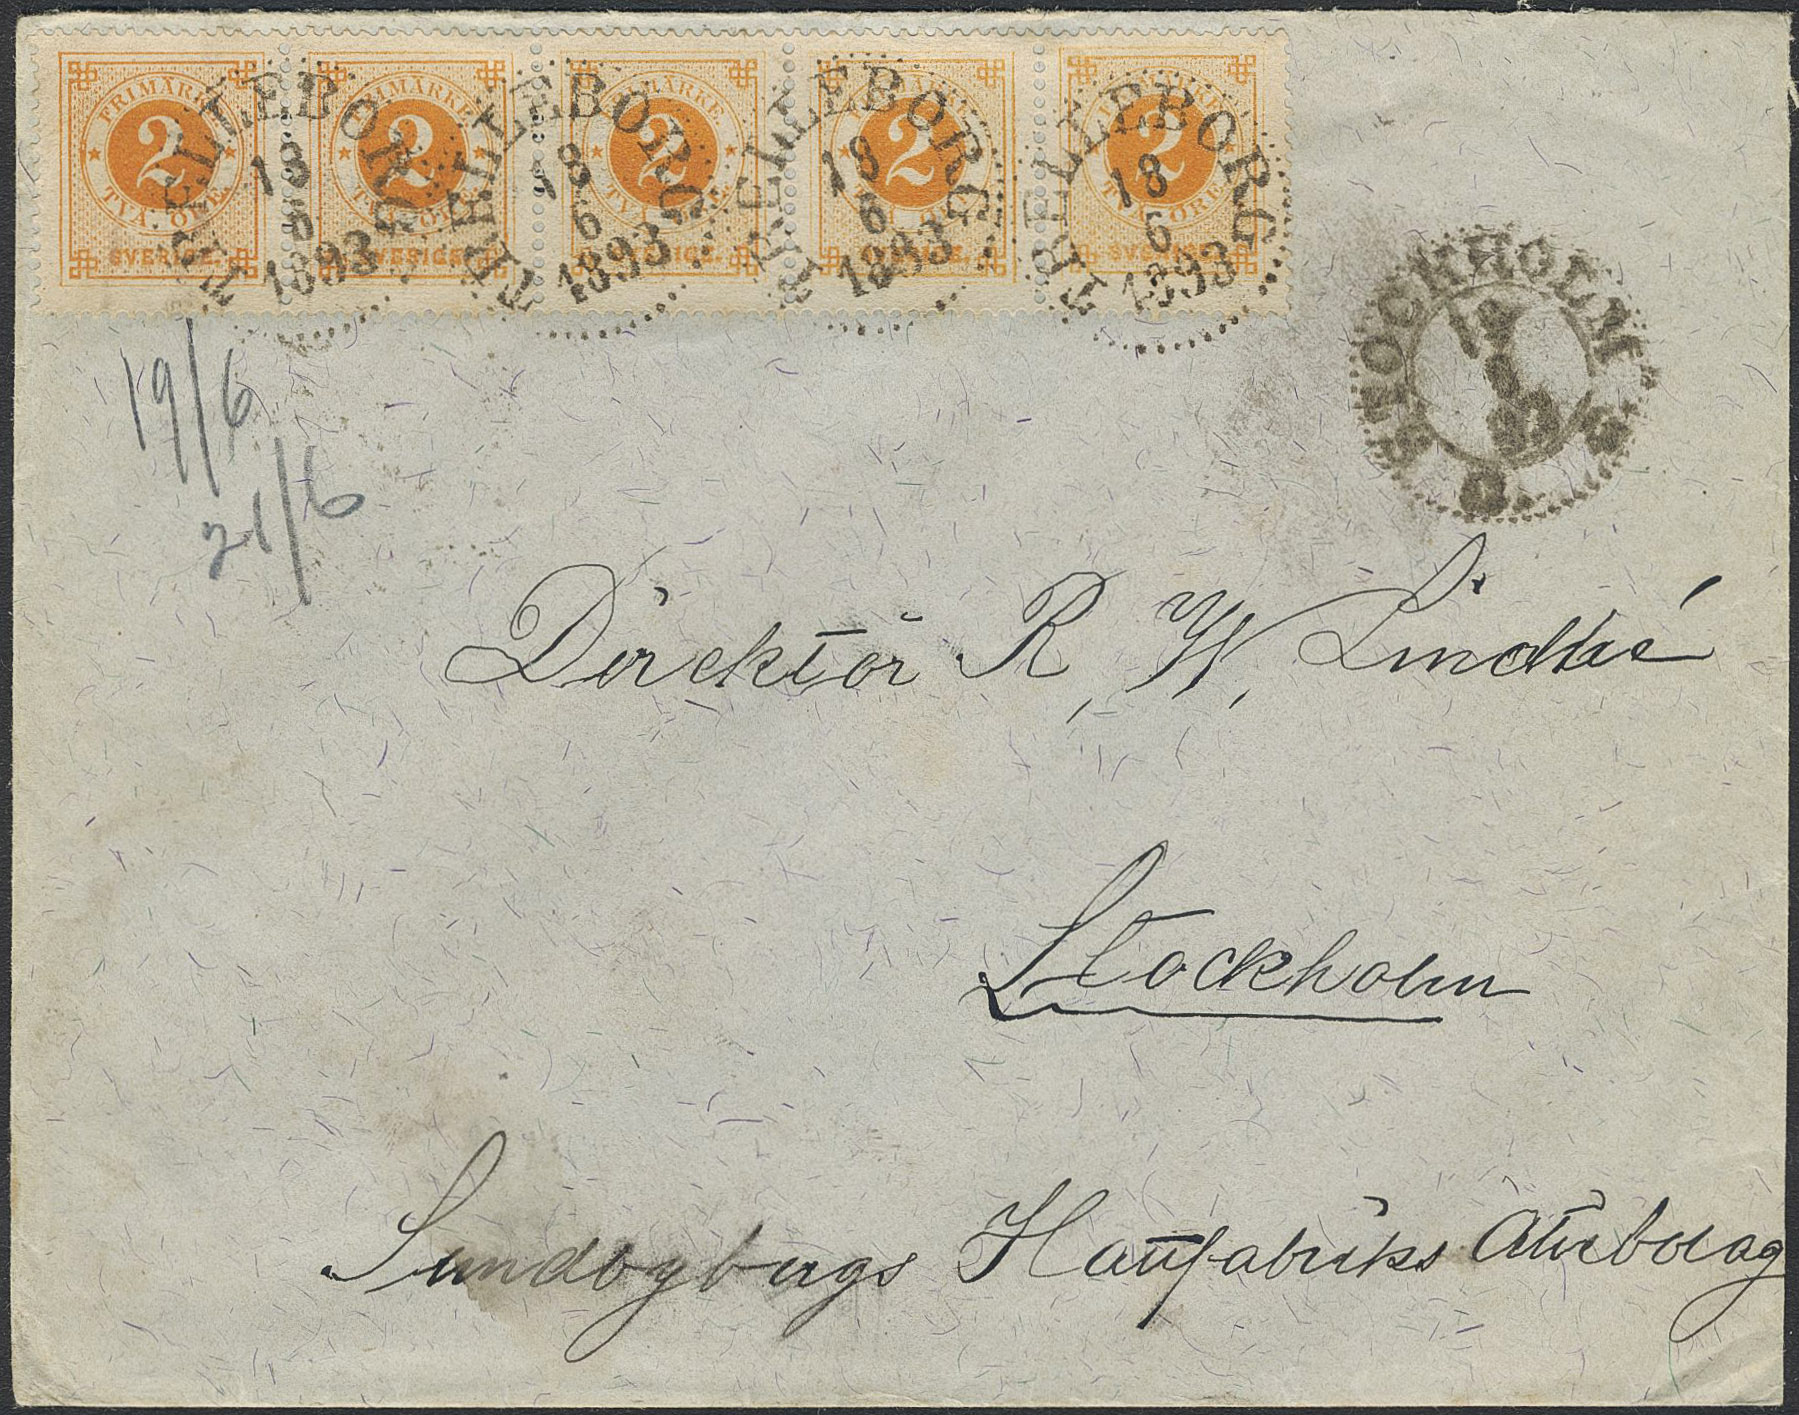 FRIMÄRKE 2 TVÅ ÖRE. SVERIGE.
FRIMÄRKE 2 TVÅ ÖRE. SVERIGE.
FRIMÄRKE 2 TVÅ ÖRE. SVERIGE.
FRIMÄRKE 2 TVÅ ÖRE. SVERIGE.
FRIMÄRKE 2 TVÅ ÖRE. SVERIGE.
TRELLEBORG 18 6 1893
TRELLEBORG 18 6 1893
TRELLEBORG 18 6 1893
TRELLEBORG 18 6 1893
STOCKHOLM 93
19/6
21/6
Direktör R. W. Lindhé
Stockholm
Sundbybergs Hattfabriks Aktiebolag